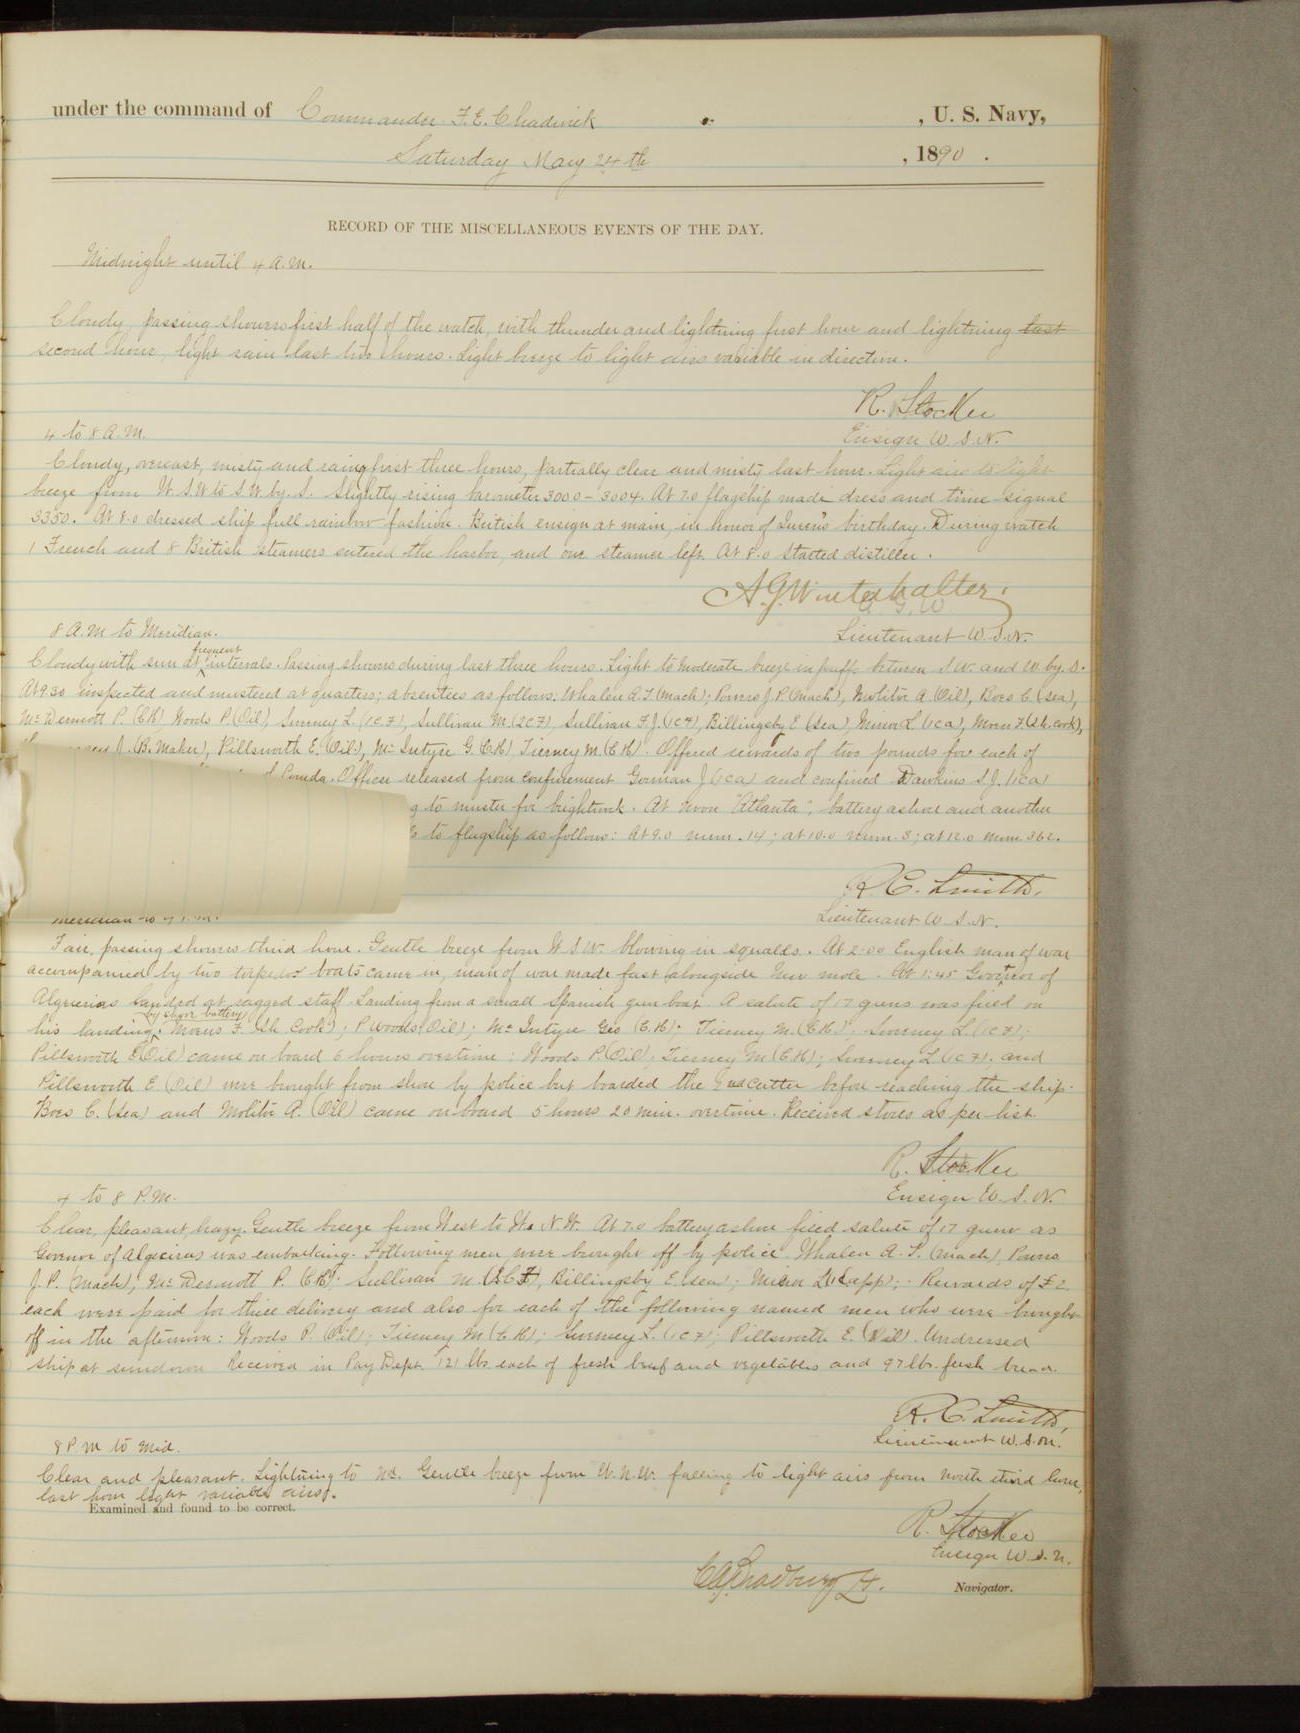 under the command of Commander F. E. Chadwick , U. S. Navy,
Saturday May 24th , 1890 .
RECORD OF THE MISCELLANEOUS EVENTS OF THE DAY.
Midnight until 4 A.M.
Cloudy, passing showers first half of the watch, with thunder and lightning first hour and lightning last
second hour, light rain last two hours. Light breeze to light airs variable in direction.
R. Stocker
4 to 8 A.M.
Ensign U.S.N.
Cloudy, overcast, misty and rainy first three hours, partially clear and misty last hour. Light airs to light
breeze from W.S.W. to S.W. by S. Slightly rising barometer 3000 - 3004. At 7.0 flagship made dress and time signal
3350. At 8.0 dressed ship full rainbow fashion. British ensign at main, in honor of Queen's birthday. During watch
1 French and 8 British steamers entered the harbor, and one steamer left. At 8.0 started distiller.
A.G. Winterhalter
A.G.W
8 A.M to Meridian.
Lieutenant U.S.N.
Cloudy with sun at frequent intervals. Passing showers during last three hours. Light to moderate breeze in puffs between S.W. and W. by S.
At 9.30 inspected and mustered at quarters; absentees as follows: Whalen A.F. (Mach); Powers J.P. (Mach), Molitor A. (Oil), Boes C. (Sea),
McDermott P. (C.H) Woods P. (Oil) Sweeney L. (1C.F), Sullivan M. (2C.F), Sullivan F.J. (1C.F), Billingsby E (Sea) Minor L. (1Ca), Morris F. (S.h. Cook),
J. (B. Maker), Pillsworth E. (Oil), McIntyre G. (C.H) Tierney M. (C.H). Offered rewards of two pounds for each of
Pounds. Officer released from confinement Gorman J (1ca) and confined Dawkins S.J. (1ca)
to muster for brightwork. At noon "Atlanta", battery ashore and another
to flagship as follows: At 9.0 num. 14; at 10.0 num. 3; at 12.0 num. 362.
R.C. Smith,
Lieutenant U.S.N.
Meridian to 4 P.M.
Fair, passing showers third hour. Gentle breeze from W.S.W. blowing in squalls. At 2.00 English man of war
accompanied by two torpedo boats came in, man of war made fast alongside New mole. At 1:45 Governor of
Algeciras landed at ragged staff Landing from a small Spanish gun boat. A salute of 17 guns was fired on
his landing by shore battery. Morris F. (Sh Cook); P Woods (Oil); McIntyre Geo (C.H); Tierney M. (C.H.); Sweeney L. (1C.F);
Pillsworth E (Oil) came on board 6 hours overtime: Woods P. (Oil); Tierney M (C.H); Sweeney L (1C.F). and
Pillsworth E. (Oil) were brought from shore by police but boarded the 2nd cutter before reaching the ship.
Boes C. (Sea) and Molitor A. (Oil) came on board 5 hours 20 min. overtime. Received stores as per list.
R. Stocker
Ensign U.S.N.
4 to 8 P.M.
Clear, pleasant, hazy. Gentle breeze from West to W. N.W. At 7.0 battery ashore fired salute of 17 guns as
Governor of Algeciras was embarking. Following men were brought off by police Whalen A.F. (Mach), Powers
J.P. (Mach); McDermott P. (C.H); Sullivan M. (2C.F), Billingsby E. (sea); Minor L. (1C app); Rewards of £2
each were paid for their delivery and also for each of the following named men who were brought
off in the afternoon: Woods P. (Oil); Tierney M (C.H); Sweeney L. (1C.F); Pillsworth E. (Oil). Undressed
ship at sundown Received in Pay Dept. 121 lbs each of fresh beef and vegetables and 97 lbs. fresh bread.
R.C. Smith,
Lieutenant U.S.N.
8 P.M to Mid.
Clear and pleasant. Lightning to Nd. Gentle breeze from W.N.W. falling to light airs from North third hour,
last hour light variable airs.
Examined and found to be correct.
R. Stocker
Ensign U.S.N.
Navigator.